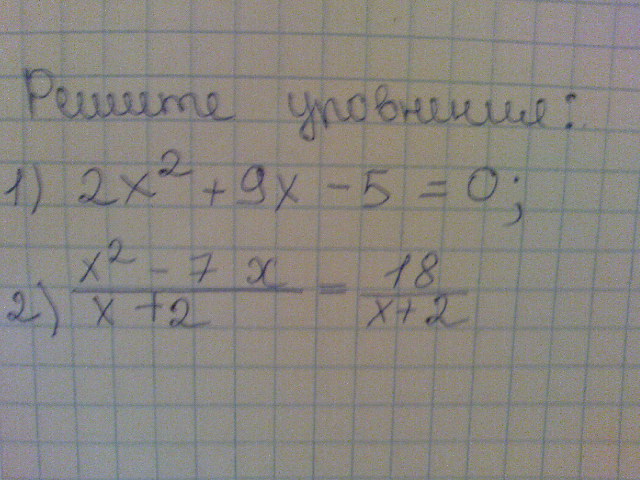 Решите уровнения:
1) 2x² + 9x - 5 = 0;
2) \frac{x² - 7x}{x + 2} = \frac{18}{x + 2}